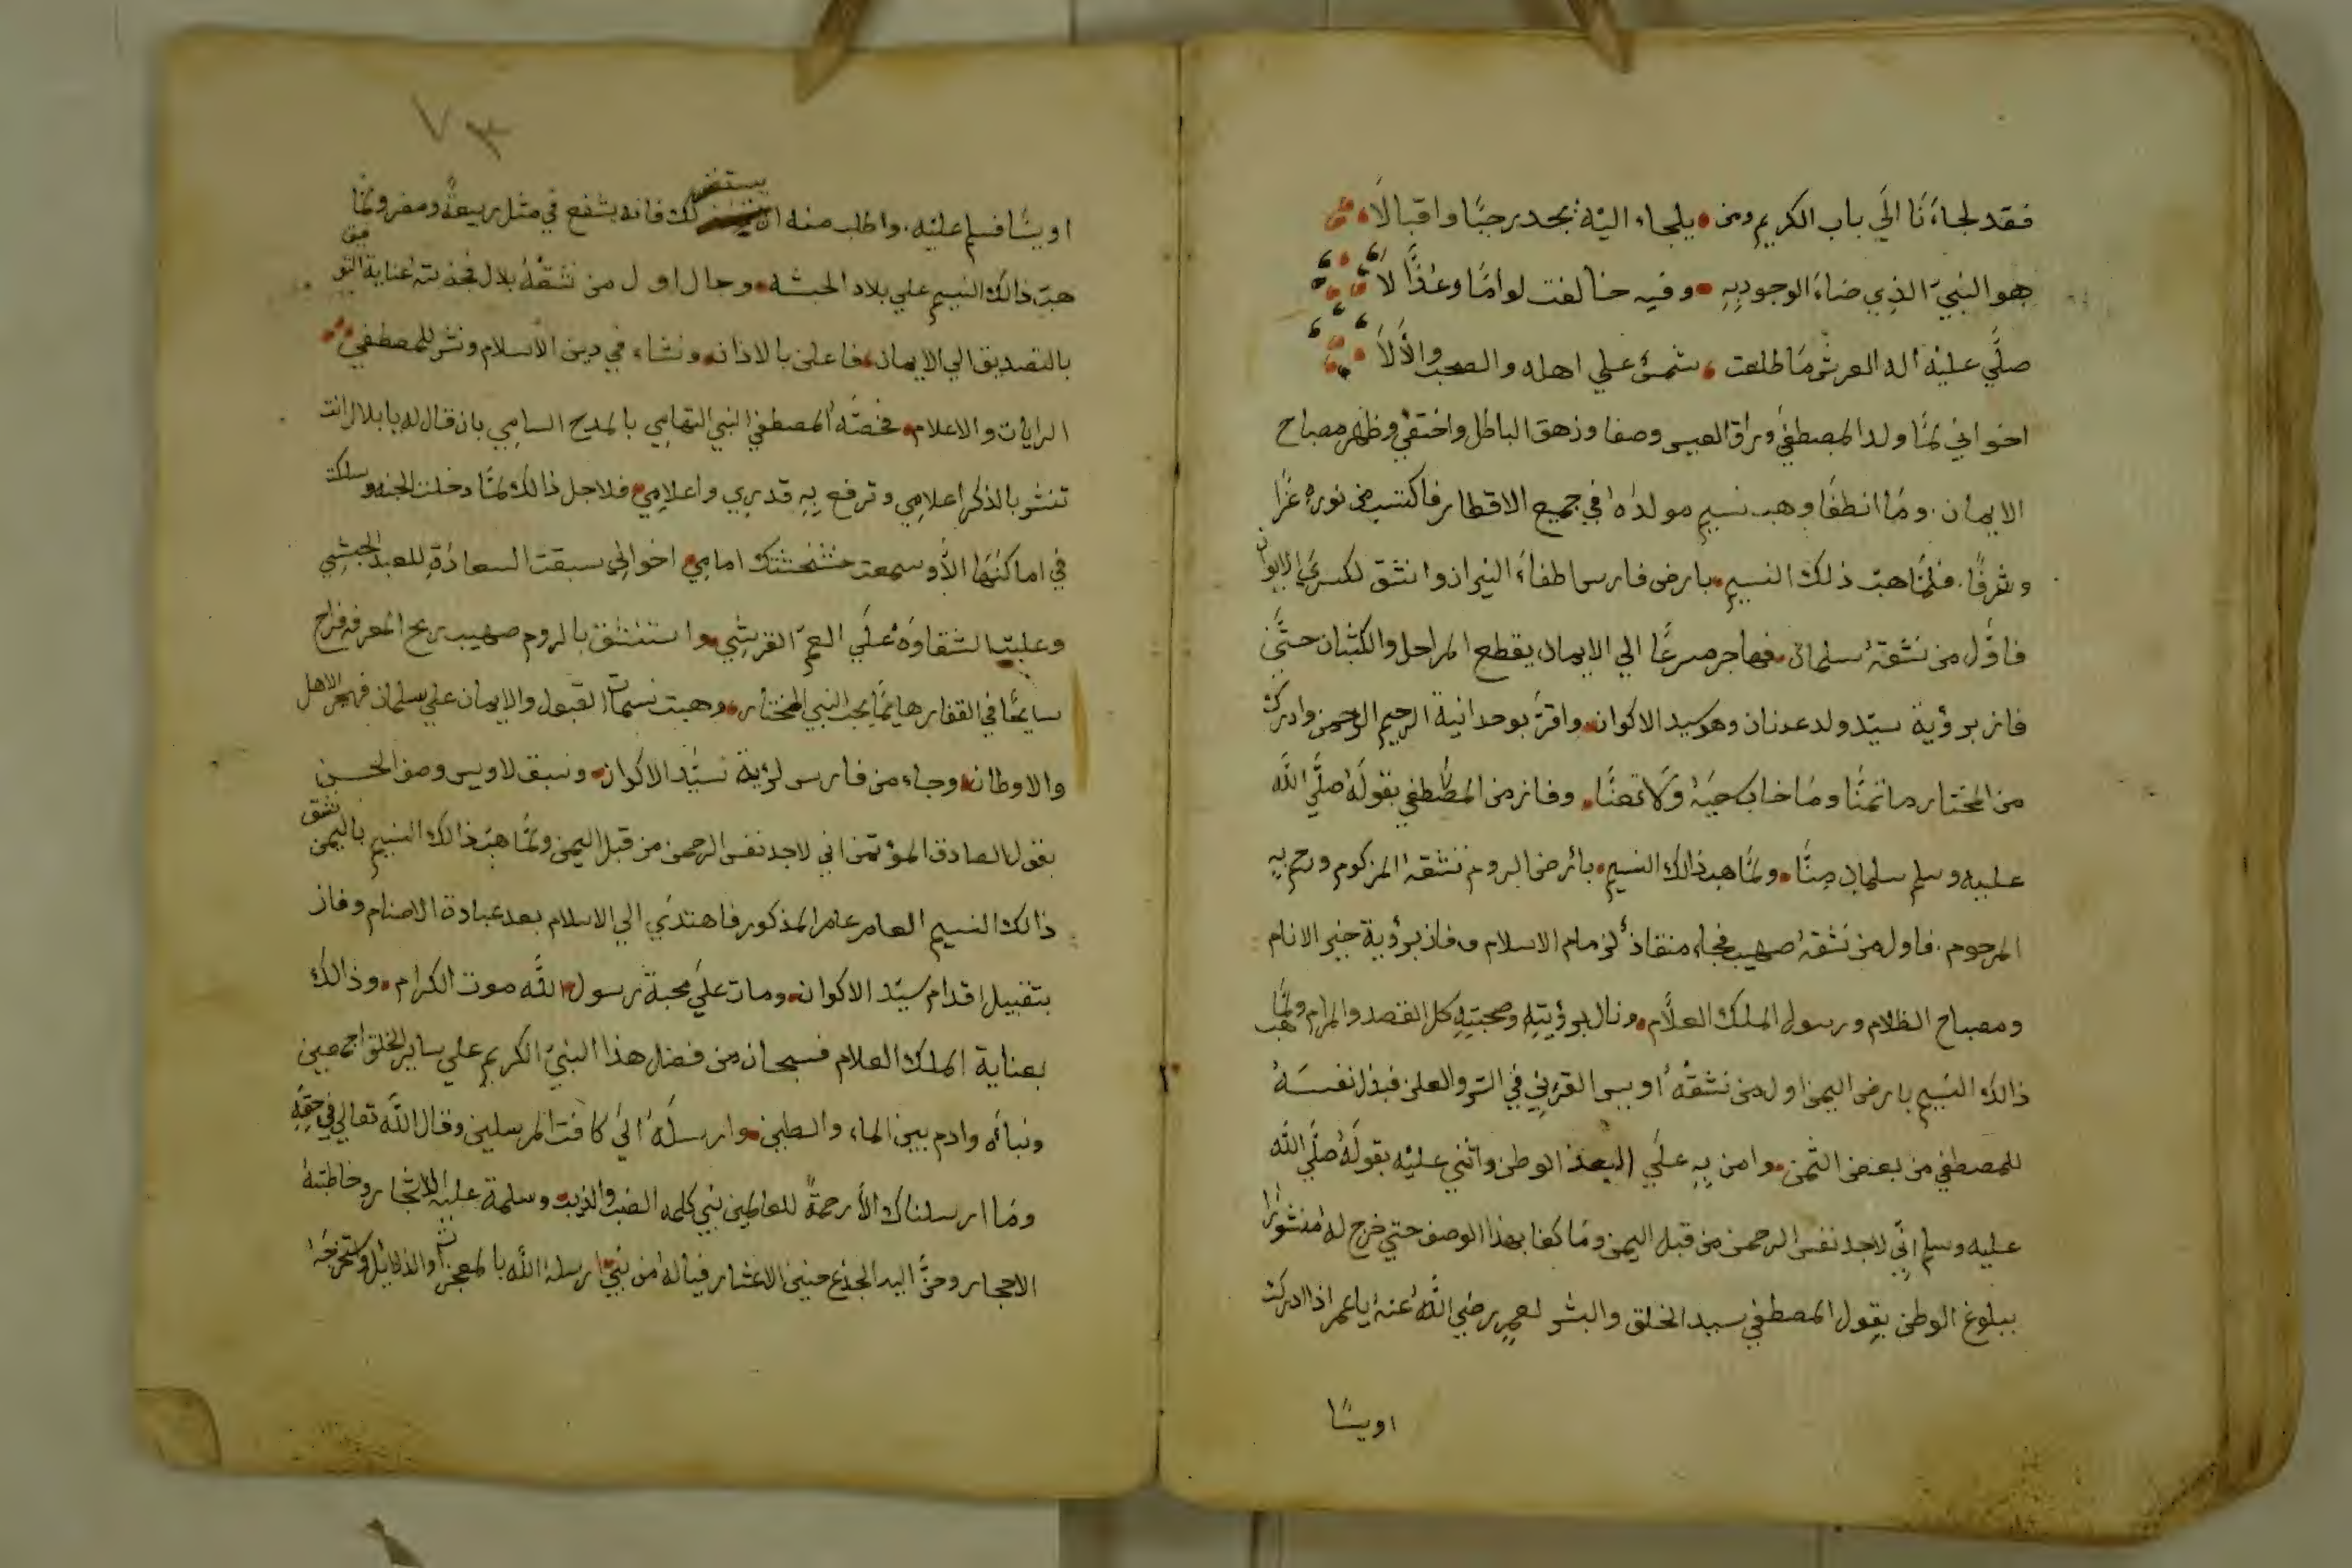 فقد لجاءَنَا الَي باب الكريم ومن يلجاء اليْه يجد رحبًا واقبالَا
هو النبيّ الذِي ضاءَ الوجود بِهِ وفيه خالفت لوامًا وعُذَّا لَا
صلَّي عليْه اله العرش مَا طلعت شمسٌ علي اهله والصحب والأَلاَ
اخواني لمَّا ولد المصطفي وراق العيس وصفا وزهق الباطل واختفي وظهر مصباح
الايمان ومَا انطفَا وهب نسيم مولدُهُ في جميع الاقطار فاكتسب من نوره عزًا
وشرفًا فلمَّا هبّ ذلك النسيم بارض فارس اطفاءَ النيران وانشق لكسري الايوان
فاوَّل من نشقهُ سلمان فهاجر مسرعًا الي الايمان يقطع المراحل والكثبان حتَّي
فاز برؤية سيّد ولد عدنان وهو سيد الاكوان واقرَّ بوحدانية الرحيم الرحمن وادرك
من المختار ما تمنَّا ومَا خاب حبَهُ ولَا تعنَّا وفاز من المصطفي بقولهُ صلَّي اللَّه
عليه وسلم سلمان منَّا ولمَّا هبّ ذالك النسيم بأرض الروم نشقهُ المزكوم ورحم بِهِ
المرحوم فاول من نشقهُ صهيب فجاء منقاذً لزمام الاسلام وفاز برؤية خير الانام
ومصباح الظلام ورسول الملك العلَّام ونال برؤيتِهِ وصحبتِهِ كل القصد والمرام ولمَّا هب
ذالك النسيم بارض اليمن اول من نشقهُ اويس القرنِي في السر والعلن فبذل نفسَهُ
للمصطفي من بعض الثمن وامن بِهِ علَي البعد الوطن واثني عليْه بقولَهُ صلَّي اللَّه
عليه وسلم انِّي لاجد نفس الرحمن من قبل اليمن ومَا كفا بهذا الوصف حتي خرج لهُ منشورًا
ببلوغ الوطن بقول المصطفي سيد الخلق والبشر لعمر رضي اللَّه عنهُ ياعمر اذا ادركت
اويسًا
٧٣
اويسًا فسلم عليْه واطلب منه ان يستغفر لك فانه يشفع في مثل ربيعةً ومضر ولمَّا
هبّ ذالك النسيم علي بلاد الحبشه وجال اول من نشقهُ بلال فجذبته عناية التوفيق
بالتصديق الي الايمان فاعلن بالاذان ونشاء في دين الاسلام ونشر للمصطفي
الرايات والاعلام فخصَّه المصطفي النبي التهامِي بالمدح السامِي بان قال له يا بلال انت
تنشر بالذكر اعلامِي وترفع بِهِ قدرِي واعلامِي فلاجل ذالك لمَّا دخلت الجنه وسلكت
في اماكنَهَا الأَّ وسمعت خشخشتك امامِي اخوالِي سبقت السعادُة للعبد الحبشِي
وغلبت الشقاوَهْ علَي العمّ القرشِي واستنشق بالروم صهيب ريح المعرفه فراح
سايحًا في القفار هايمًا بحب النبي المختار وهبت نسمات القبول والايمان علي سلمان فهجر الاهل
والاوطان وجاء من فارس لرؤية سيّد الاكوان وسبق لاويس وصف الحسن
بقول الصادق المؤتمن اني لاجد نفس الرحمن من قبل اليمن ولمَّا هبّ ذالك النسيم باليمن نشق
ذالك النسيم العامر عامر المذكور فاهتدَي الي الاسلام بعد عبادة الاصنام وفاز
بتقبيل اقدام سيّد الاكوان ومات علَي محبة رسول اللَّه موت الكرام وذالك
بعناية الملك العلام فسبحان من فضل هذا النبيّ الكريم علي ساير الخلق اجمعين
ونباءَه وادم بين الماء والطين وارسلَهُ الَي كافت المرسلين وقال اللَّه تعالي في حقِهِ
ومَا ارسلناك الأَّ رحمةً للعالمين نبي كلمه الضب والذيب وسلمة عليْه الاشجار وخاطبتهُ
الاحجار وحنَّ اليه الجذع حنين الاعشار فيالهُ من نبيّ ارسلهُ اللَّه بالمعجزات والدلائل